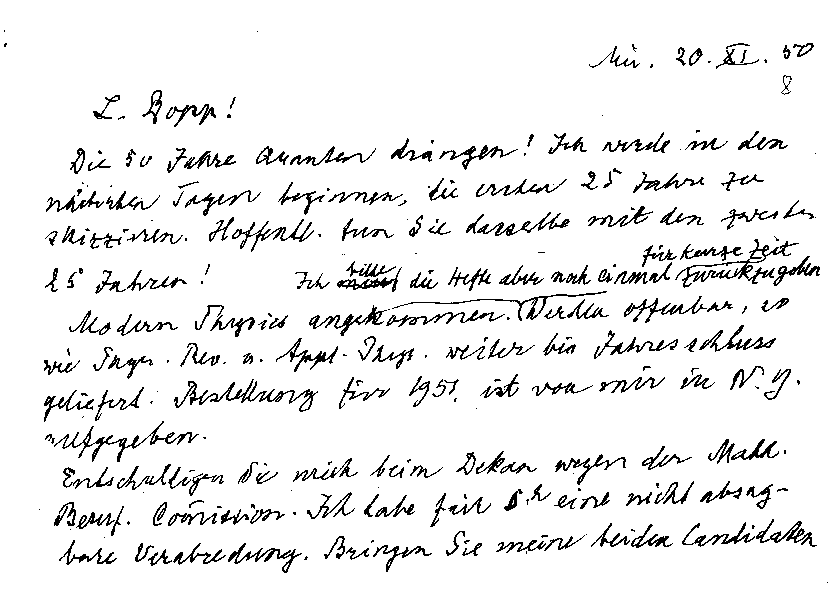 Mü. 20. XI. 50
8
L. Bopp!
Die 50 Jahre Quanten drängen! Ich werde in den
nächsten Tagen beginnen, die ersten 25 Jahre zu
skizzieren. Hoffentl. tun Sie dasselbe mit den zweiten
für kurze Zeit
25 Jahren! Ich bitte die Hefte aber noch einmal zurückzugeben
Modern Physics angekommen. Werden offenbar, so
wie Phys. Rev. u. Appl. Phys. weiter bis Jahresschluss
geliefert. Bestellung für 1951 ist von mir in N.Y.
aufgegeben.
Entschuldigen Sie mich beim Dekan wegen der Math.
Beruf. Com̄ission. Ich habe für 5h eine nicht absag-
bare Verabredung. Bringen Sie meine beiden Candidaten